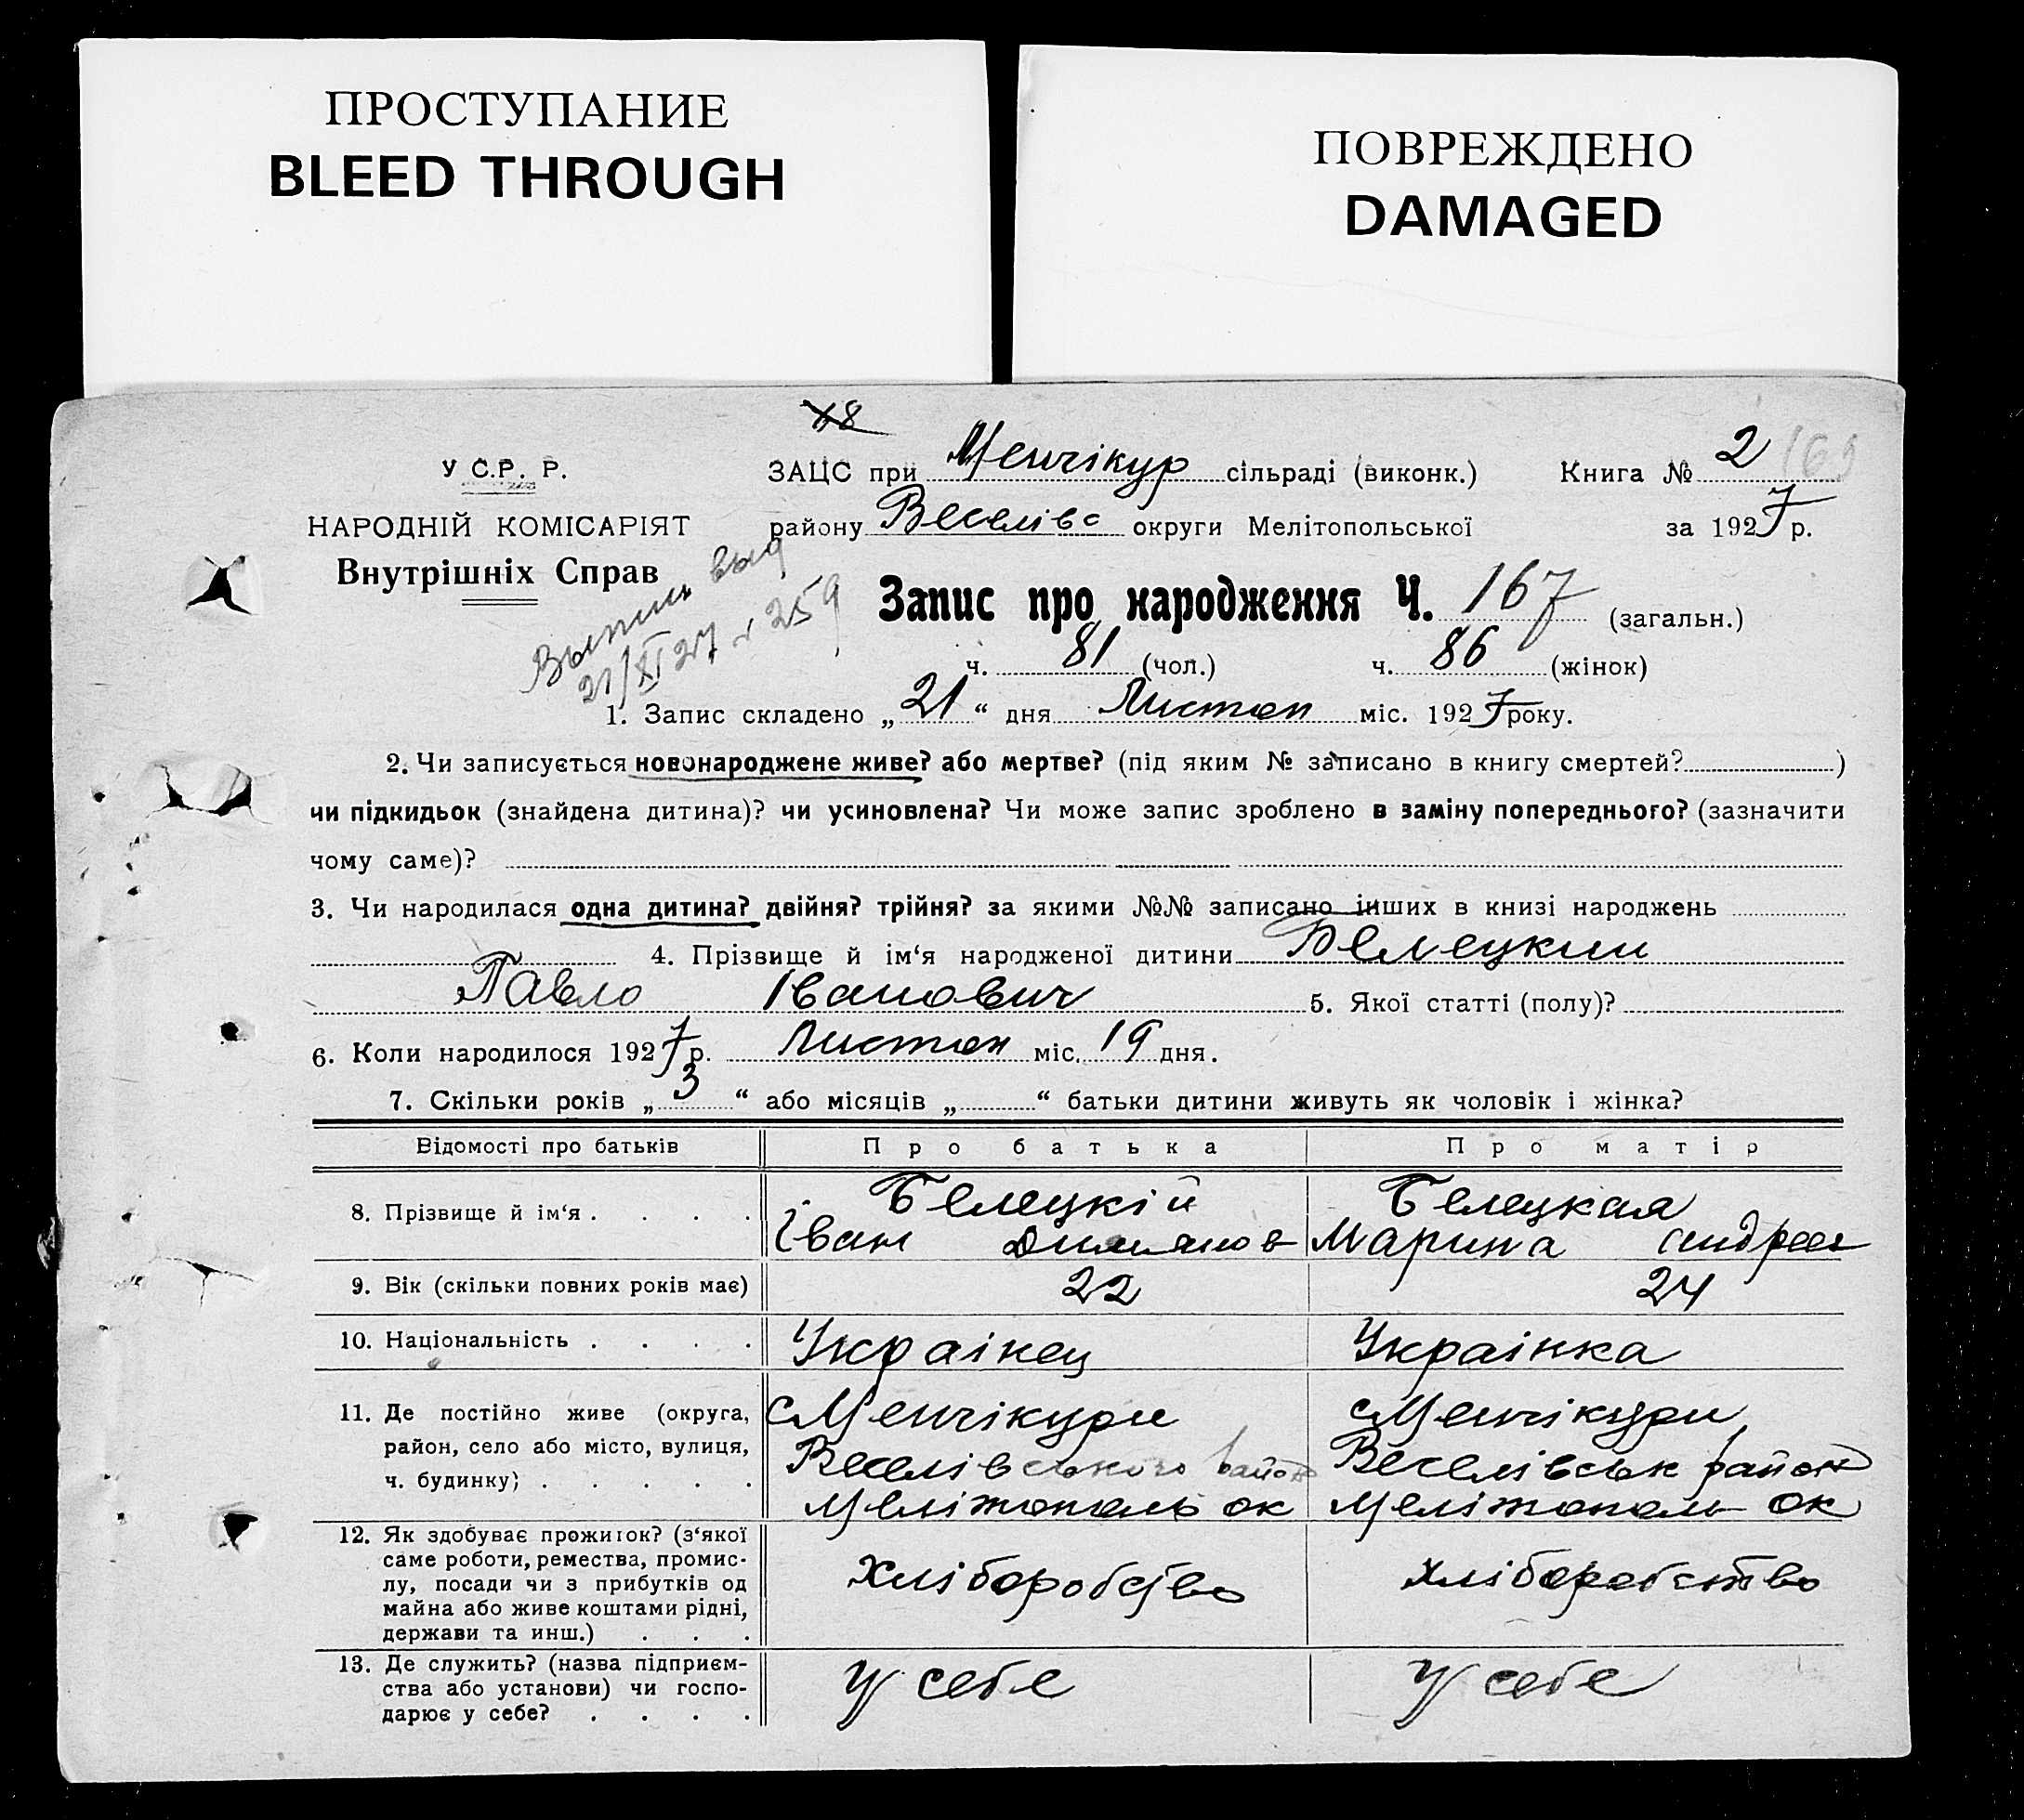 ПРОСТУПАНИЕ
BLEED THROUGH
ПОВРЕЖДЕНО
DAMAGED
48
У С.Р. Р.
НАРОДНІЙ КОМІСАРІЯТ
Внутрішніх Справ
Выпись выд
21/XI 27 259
ЗАЦС при Менчікур сільраді (виконк.) Книга № 2 169
району Веселівс округи Мелітопольської за 1927 р.
Запис про народження Ч. 167 (загальн.)
ч. 81 (чол.) ч. 86 (жінок)
1. Запис складено „ 21 “ дня Листоп міс. 1927 року.
2. Чи записується новонароджене живе? або мертве? (під яким № записано в книгу смертей? )
чи підкидьок (знайдена дитина)? чи усиновлена? Чи може запис зроблено в заміну попереднього? (зазначити
чому саме)?
3. Чи народилася одна дитина? двійня? трійня? за якими №№ записано інших в книзі народжень
4. Прізвище й ім‘я народженої дитини Белецкий
Павло Іванович 5. Якої статті (полу)?
6. Коли народилося 1927 р. Листоп міс. 19 дня.
7. Скільки років „ 3 “ або місяців „ “ батьки дитини живуть як чоловік і жінка?
Відомості про батьків Про батька Про матір
8. Прізвище й ім‘я . . . . Белецкій Белецкая
Іван Марина Андреев
9. Вік (скільки повних років має) 22 24
10. Національність . . . . Украінец Украінка
11. Де постійно живе (округа, с Менчікури с Менчікури
район, село або місто, вулиця, Веселівського район Веселівськ район
ч. будинку) . . . . . Мелітополь ок Мелітополь ок
12. Як здобуває прожиток? (з‘якої
саме роботи, ремества, промис-
лу, посади чи з прибутків од Хліборобство Хліборобство
майна або живе коштами рідні,
держави та инш.) . . .
13. Де служить? (назва підприєм-
ства або установи) чи госпо- У себе У себе
дарює у себе? . . . .